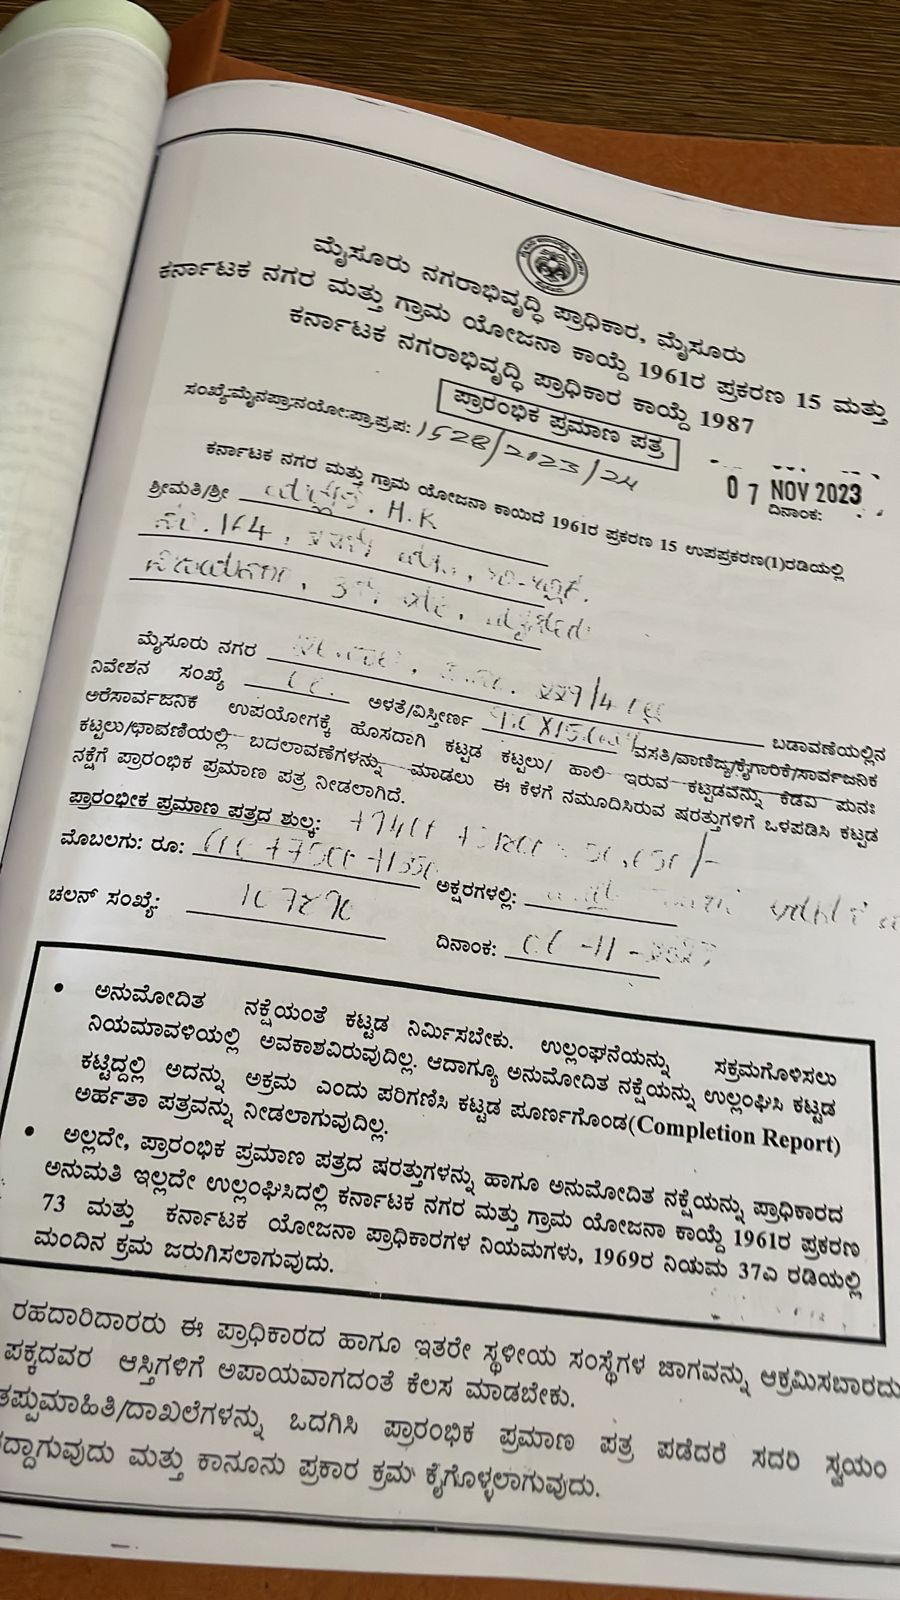 ಮೈಸೂರು ನಗರಾಭಿವೃದ್ಧಿ ಪ್ರಾಧಿಕಾರ, ಮೈಸೂರು
ಕರ್ನಾಟಕ ನಗರ ಮತ್ತು ಗ್ರಾಮ ಯೋಜನಾ ಕಾಯ್ದೆ 1961ರ ಪ್ರಕರಣ 15 ಮತ್ತು
ಕರ್ನಾಟಕ ನಗರಾಭಿವೃದ್ಧಿ ಪ್ರಾಧಿಕಾರ ಕಾಯ್ದೆ 1987
ಪ್ರಾರಂಭಿಕ ಪ್ರಮಾಣ ಪತ್ರ
ಸಂಖ್ಯೆ:ಮೈನಪ್ರಾ:ನಯೋ:ಪ್ರಾ.ಪ್ರ.ಪ: 1528/2023/24
07 NOV 2023
ದಿನಾಂಕ:
ಕರ್ನಾಟಕ ನಗರ ಮತ್ತು ಗ್ರಾಮ ಯೋಜನಾ ಕಾಯಿದೆ 1961ರ ಪ್ರಕರಣ 15 ಉಪಪ್ರಕರಣ(1)ರಡಿಯಲ್ಲಿ
ಶ್ರೀಮತಿ/ಶ್ರೀ H.K
164,
ಮೈಸೂರು ನಗರ
ಬಡಾವಣೆಯಲ್ಲಿನ
ನಿವೇಶನ ಸಂಖ್ಯೆ ಅಳತೆ/ವಿಸ್ತೀರ್ಣ ವಸತಿ/ವಾಣಿಜ್ಯ/ಕೈಗಾರಿಕೆ/ಸಾರ್ವಜನಿಕ
ಅರೆಸಾರ್ವಜನಿಕ ಉಪಯೋಗಕ್ಕೆ ಹೊಸದಾಗಿ ಕಟ್ಟಡ ಕಟ್ಟಲು/ ಹಾಲಿ ಇರುವ ಕಟ್ಟಡವನ್ನು ಕೆಡವಿ ಪುನಃ
ಕಟ್ಟಲು/ಛಾವಣಿಯಲ್ಲಿ ಬದಲಾವಣೆಗಳನ್ನು ಮಾಡಲು ಈ ಕೆಳಗೆ ನಮೂದಿಸಿರುವ ಷರತ್ತುಗಳಿಗೆ ಒಳಪಡಿಸಿ ಕಟ್ಟಡ
ನಕ್ಷೆಗೆ ಪ್ರಾರಂಭಿಕ ಪ್ರಮಾಣ ಪತ್ರ ನೀಡಲಾಗಿದೆ.
ಪ್ರಾರಂಭೀಕ ಪ್ರಮಾಣ ಪತ್ರದ ಶುಲ್ಕ:
ಮೊಬಲಗು: ರೂ: ಅಕ್ಷರಗಳಲ್ಲಿ:
ಚಲನ್ ಸಂಖ್ಯೆ: ದಿನಾಂಕ:
• ಅನುಮೋದಿತ ನಕ್ಷೆಯಂತೆ ಕಟ್ಟಡ ನಿರ್ಮಿಸಬೇಕು. ಉಲ್ಲಂಘನೆಯನ್ನು ಸಕ್ರಮಗೊಳಿಸಲು
ನಿಯಮಾವಳಿಯಲ್ಲಿ ಅವಕಾಶವಿರುವುದಿಲ್ಲ. ಆದಾಗ್ಯೂ ಅನುಮೋದಿತ ನಕ್ಷೆಯನ್ನು ಉಲ್ಲಂಘಿಸಿ ಕಟ್ಟಡ
ಕಟ್ಟಿದ್ದಲ್ಲಿ ಅದನ್ನು ಅಕ್ರಮ ಎಂದು ಪರಿಗಣಿಸಿ ಕಟ್ಟಡ ಪೂರ್ಣಗೊಂಡ(Completion Report)
ಅರ್ಹತಾ ಪತ್ರವನ್ನು ನೀಡಲಾಗುವುದಿಲ್ಲ.
• ಅಲ್ಲದೇ, ಪ್ರಾರಂಭಿಕ ಪ್ರಮಾಣ ಪತ್ರದ ಷರತ್ತುಗಳನ್ನು ಹಾಗೂ ಅನುಮೋದಿತ ನಕ್ಷೆಯನ್ನು ಪ್ರಾಧಿಕಾರದ
ಅನುಮತಿ ಇಲ್ಲದೇ ಉಲ್ಲಂಘಿಸಿದಲ್ಲಿ ಕರ್ನಾಟಕ ನಗರ ಮತ್ತು ಗ್ರಾಮ ಯೋಜನಾ ಕಾಯ್ದೆ 1961ರ ಪ್ರಕರಣ
73 ಮತ್ತು ಕರ್ನಾಟಕ ಯೋಜನಾ ಪ್ರಾಧಿಕಾರಗಳ ನಿಯಮಗಳು, 1969ರ ನಿಯಮ 37ಎ ರಡಿಯಲ್ಲಿ
ಮಂದಿನ ಕ್ರಮ ಜರುಗಿಸಲಾಗುವುದು.
ರಹದಾರಿದಾರರು ಈ ಪ್ರಾಧಿಕಾರದ ಹಾಗೂ ಇತರೇ ಸ್ಥಳೀಯ ಸಂಸ್ಥೆಗಳ ಜಾಗವನ್ನು ಆಕ್ರಮಿಸಬಾರದು
ಪಕ್ಕದವರ ಆಸ್ತಿಗಳಿಗೆ ಅಪಾಯವಾಗದಂತೆ ಕೆಲಸ ಮಾಡಬೇಕು.
ತಪ್ಪುಮಾಹಿತಿ/ದಾಖಲೆಗಳನ್ನು ಒದಗಿಸಿ ಪ್ರಾರಂಭಿಕ ಪ್ರಮಾಣ ಪತ್ರ ಪಡೆದರೆ ಸದರಿ ಸ್ವಯಂ
ದ್ದಾಗುವುದು ಮತ್ತು ಕಾನೂನು ಪ್ರಕಾರ ಕ್ರಮ ಕೈಗೊಳ್ಳಲಾಗುವುದು.